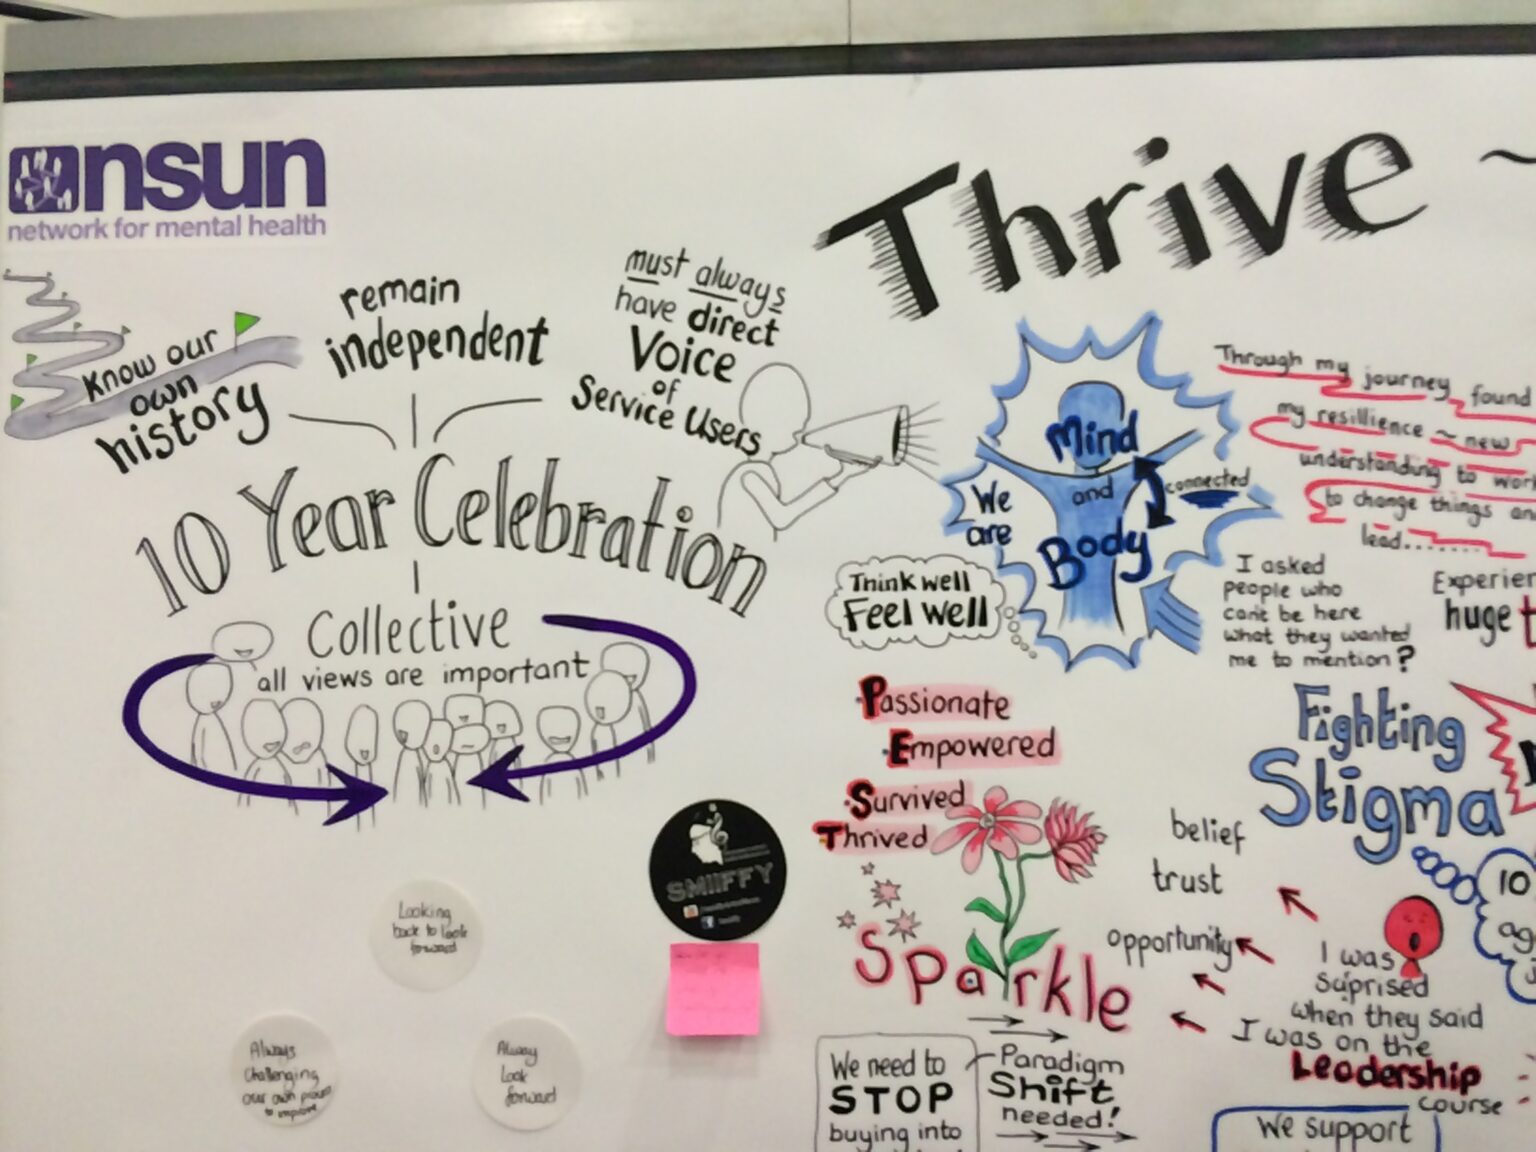 nsun
network for mental health
Know our
own
history
remain
independent
must always
have direct
Voice
of
Service Users
10 Year Celebration
Collective
all views are important
Looking
back to look
forward
Always
Challenging
our own
to improve
Alway
Look
forward
SMIIFFY
Thrive ~
Mind
and
Body
connected
We
are
Think well
Feel well
Through my journey found
my resillience ~ new
understanding to work
to change things an
lead........
I asked
people who
cant be here
what they wanted
me to mention?
Experien
huge t
Passionate
Empowered
Survived
Thrived
Sparkle
Fighting
Stigma
belief
trust
opportunity
10
ag
I was
suprised
when they said
I was on the
Leadership
course
We need to
STOP
buying into
Paradigm
Shift
needed!
We support